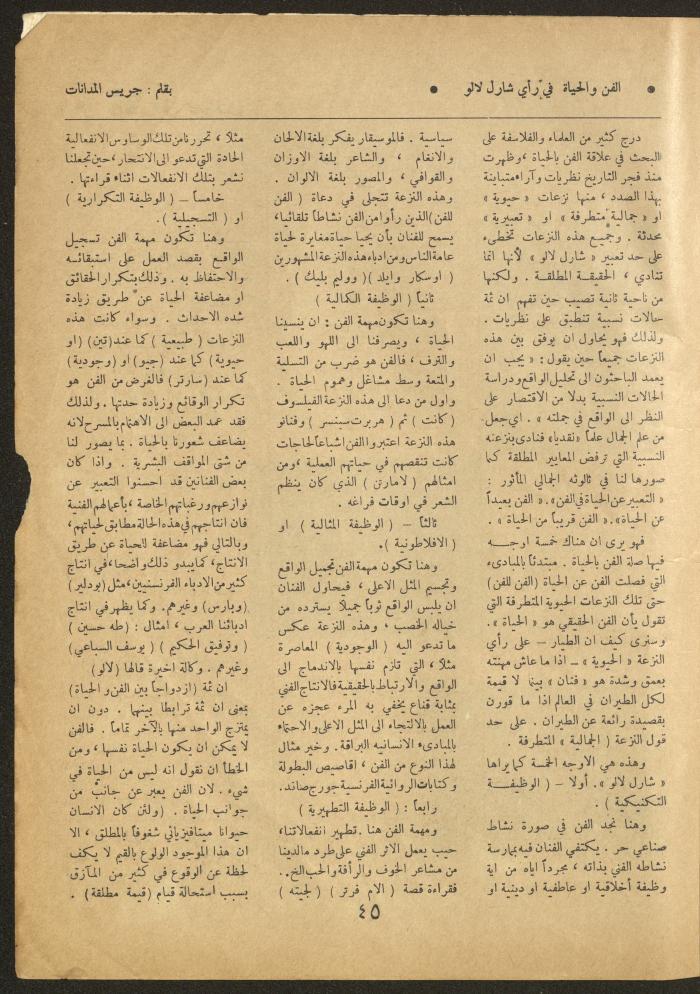 • الفن والحياة في رأي شارل لالو •
بقلم : جريس المدانات
درج كثير من العلماء والفلاسفة على
البحث في علاقة الفن بالحياة ، وظهرت
منذ فجر التاريخ نظريات وآراء متباينة
بهذا الصدد ، منها نزعات « حيوية »
او « جمالية متطرفة » او « تعبيرية »
محدثة . وجميع هذه النزعات تخطىء
على حد تعبير « شارل لالو » لأنها انما
تنادي ، الحقيقة المطلقة . ولكنها
من ناحية ثانية تصيب حين تفهم ان ثمة
حالات نسبية تنطبق على نظريات .
ولذلك فهو يحاول ان يوفق بين هذه
النزعات جميعاً حين يقول : « يجب ان
يعمد الباحثون الى تحليل الواقع ودراسة
الحالات النسبية بدلا من الاقتصار على
النظر الى الواقع في جملته » . اي جعل
من علم الجمال علماً «نقدياً» فنادى بنزعته
النسبية التي ترفض المعايير المطلقة كما
صورها لنا في ثالوثه الجمالي المأثور :
« التعبير عن الحياة في الفن» . « الفن بعيداً
عن الحياة» . « الفن قريباً من الحياة » .
فهو يرى ان هناك خمسة اوجــه
فيها صلة الفن بالحياة . مبتدئاً بالمبادىء
التي فصلت الفن عن الحياة (الفن للفن)
حتى تلك النزعات الحيوية المتطرفة التي
تقول بأن الفن الحقيقي هو « الحياة» .
وسنرى كيف ان الطيار – على رأي
النزعة « الحيوية » – اذا ما عاش مهنته
بعمق وشدة هو « فنان » بينما لا قيمة
لكل الطيران في العالم اذا ما قورن
بقصيدة رائعة عن الطيران . على حد
قول النزعة ( الجمالية » المتطرفة .
وهذه هي الاوجه الخمسة كما يراها
« شارل لالو » . أولا – ( الوظيفــة
التكنيكية ) .
وهنا نجد الفن في صورة نشاط
صناعي حر . يكتفي الفنان فيه بممارسة
نشاطه الفني بذاته ، مجرداً اياه من اية
وظيفة أخلاقية او عاطفية او دينية او
سياسية . فالموسيقار يفكر بلغة الالحان
والانغام ، والشاعر بلغة الاوزان
والقوافي ، والمصور بلغة الالوان .
وهذه النزعة تتجلى في دعاة ( الفن
للفن) الذين رأوا من الفن نشاطاً تلقائياً،
يسمح للفنان بأن يحيا حياة مغايرة لحياة
عامة الناس ومن ادباء هذه النزعة المشهورين
( اوسكار وايلد )( ووليم بليك ) .
ثانياً ( الوظيفة الكمالية )
وهنا تكون مهمة الفن : ان ينسينا
الحياة ، ويصرفنا الى اللهو واللعب
والترف ، فالفن هو ضرب من التسلية
والمتعة وسط مشاغل وهموم الحياة .
واول من دعا الى هذه النزعة الفيلسوف
( كانت ) ثم ( هربرت سبنسر ) وفنانو
هذه النزعة اعتبروا الفن اشباعاً لحاجات
كانت تنقصهم في حياتهم العملية ، ومن
امثالهم ( لامارتن ) الذي كان ينظم
الشعر في اوقات فراغه .
ثالثاً – ( الوظيفة المثالية ) او
( الافلاطونية ) .
وهنا تكون مهمة الفن تجميل الواقع
وتجسيم المثل الاعلى ، فيحاول الفنان
ان يلبس الواقع ثوباً جميلاً يسترده من
خياله الخصب ، وهذه النزعة عكس
ما تدعو اليه ( الوجودية ) المعاصرة
مثلا ، التي تلزم نفسها بالاندماج الى
الواقع والارتباط بالحقيقة فالانتاج الفني
بمثابة قناع يخفي به المرء عجزه عن
العمل بالالتجاء الى المثل الاعلى والاحتماء
بالمبادىء الانسانيه البراقة . وخير مثال
لهذا النوع من الفن ، اقاصيص البطولة
وكتابات الروائية الفرنسية جورج صاند.
رابعاً : ( الوظيفة التطهيرية )
ومهمة الفن هنا . تطهير انفعالاتنا،
حيث يعمل الاثر الفني على طرد ما لدينا
من مشاعر الخوف والرأفة والحب الخ .
فقراءة قصة ( الام فرتر ) ( لجيته )
مثلا ، تحررنا من تلك الوساوس الانفعالية
الحادة التي تدعو الى الانتحار ، حين تجعلنا
نشعر بتلك الانفعالات اثناء قراءتها .
خامساً – ( الوظيفة التكرارية )
او ( التسجيلية ) .
وهنا تكون مهمة الفن تسجيل
الواقع بقصد العمل على استبقائه
والاحتفاظ به . وذلك بتكرار الحقائق
او مضاعفة الحياة عن طريق زيادة
شده الاحداث . وسواء كانت هذه
النزعات ( طبيعية ) كما عند (تين) (او
حيوية) كما عند (جيو) او (وجودية)
كما عند (سارتر) فالغرض من الفن هو
تكرار الوقائع وزيادة حدتها . ولذلك
فقد عمد البعض الى الاهتمام بالمسرح لانه
يضاعف شعورنا بالحياة . بما يصور لنا
من شتى المواقف البشرية . واذا كان
بعض الفنانين قد احسنوا التعبير عن
نوازعهم ورغباتهم الخاصة ، بأعمالهم الفنية
فان انتاجهم في هذه الحالة مطابق لحياتهم،
وبالتالي فهو مضاعفة للحياة عن طريق
الانتاج، كما يبدو ذلك واضحا، في انتاج
كثير من الادباء الفرنسيين، مثل (بودلير)
(وبارس) وغيرهم . وكما يظهر في انتاج
ادبائنا العرب ، امثال : (طه حسين )
( وتوفيق الحكيم ) ( يوسف السباعي )
وغيرهم . وكالة اخيرة قالها (لالو)
ان ثمة (ازدواجاً بين الفن والحياة)
بمعنى ان ثمة ترابطا بينهما . دون ان
يمتزج الواحد منها بالآخر تماماً . فالفن
لا يمكن ان يكون الحياة نفسها ، ومن
الخطأ ان نقول انه ليس من الحياة في
شيء . لان الفن يعبر عن جانب من
جوانب الحياة . (ولئن كان الانسان
حيوانا ميتافيزيائي شغوفاً بالمطلق ، الا
ان هذا الموجود الولوع بالقيم لا يكف
لحظة عن الوقوع في كثير من المآزق
بسبب استحالة قيام (قيمة مطلقة) .
٤٥